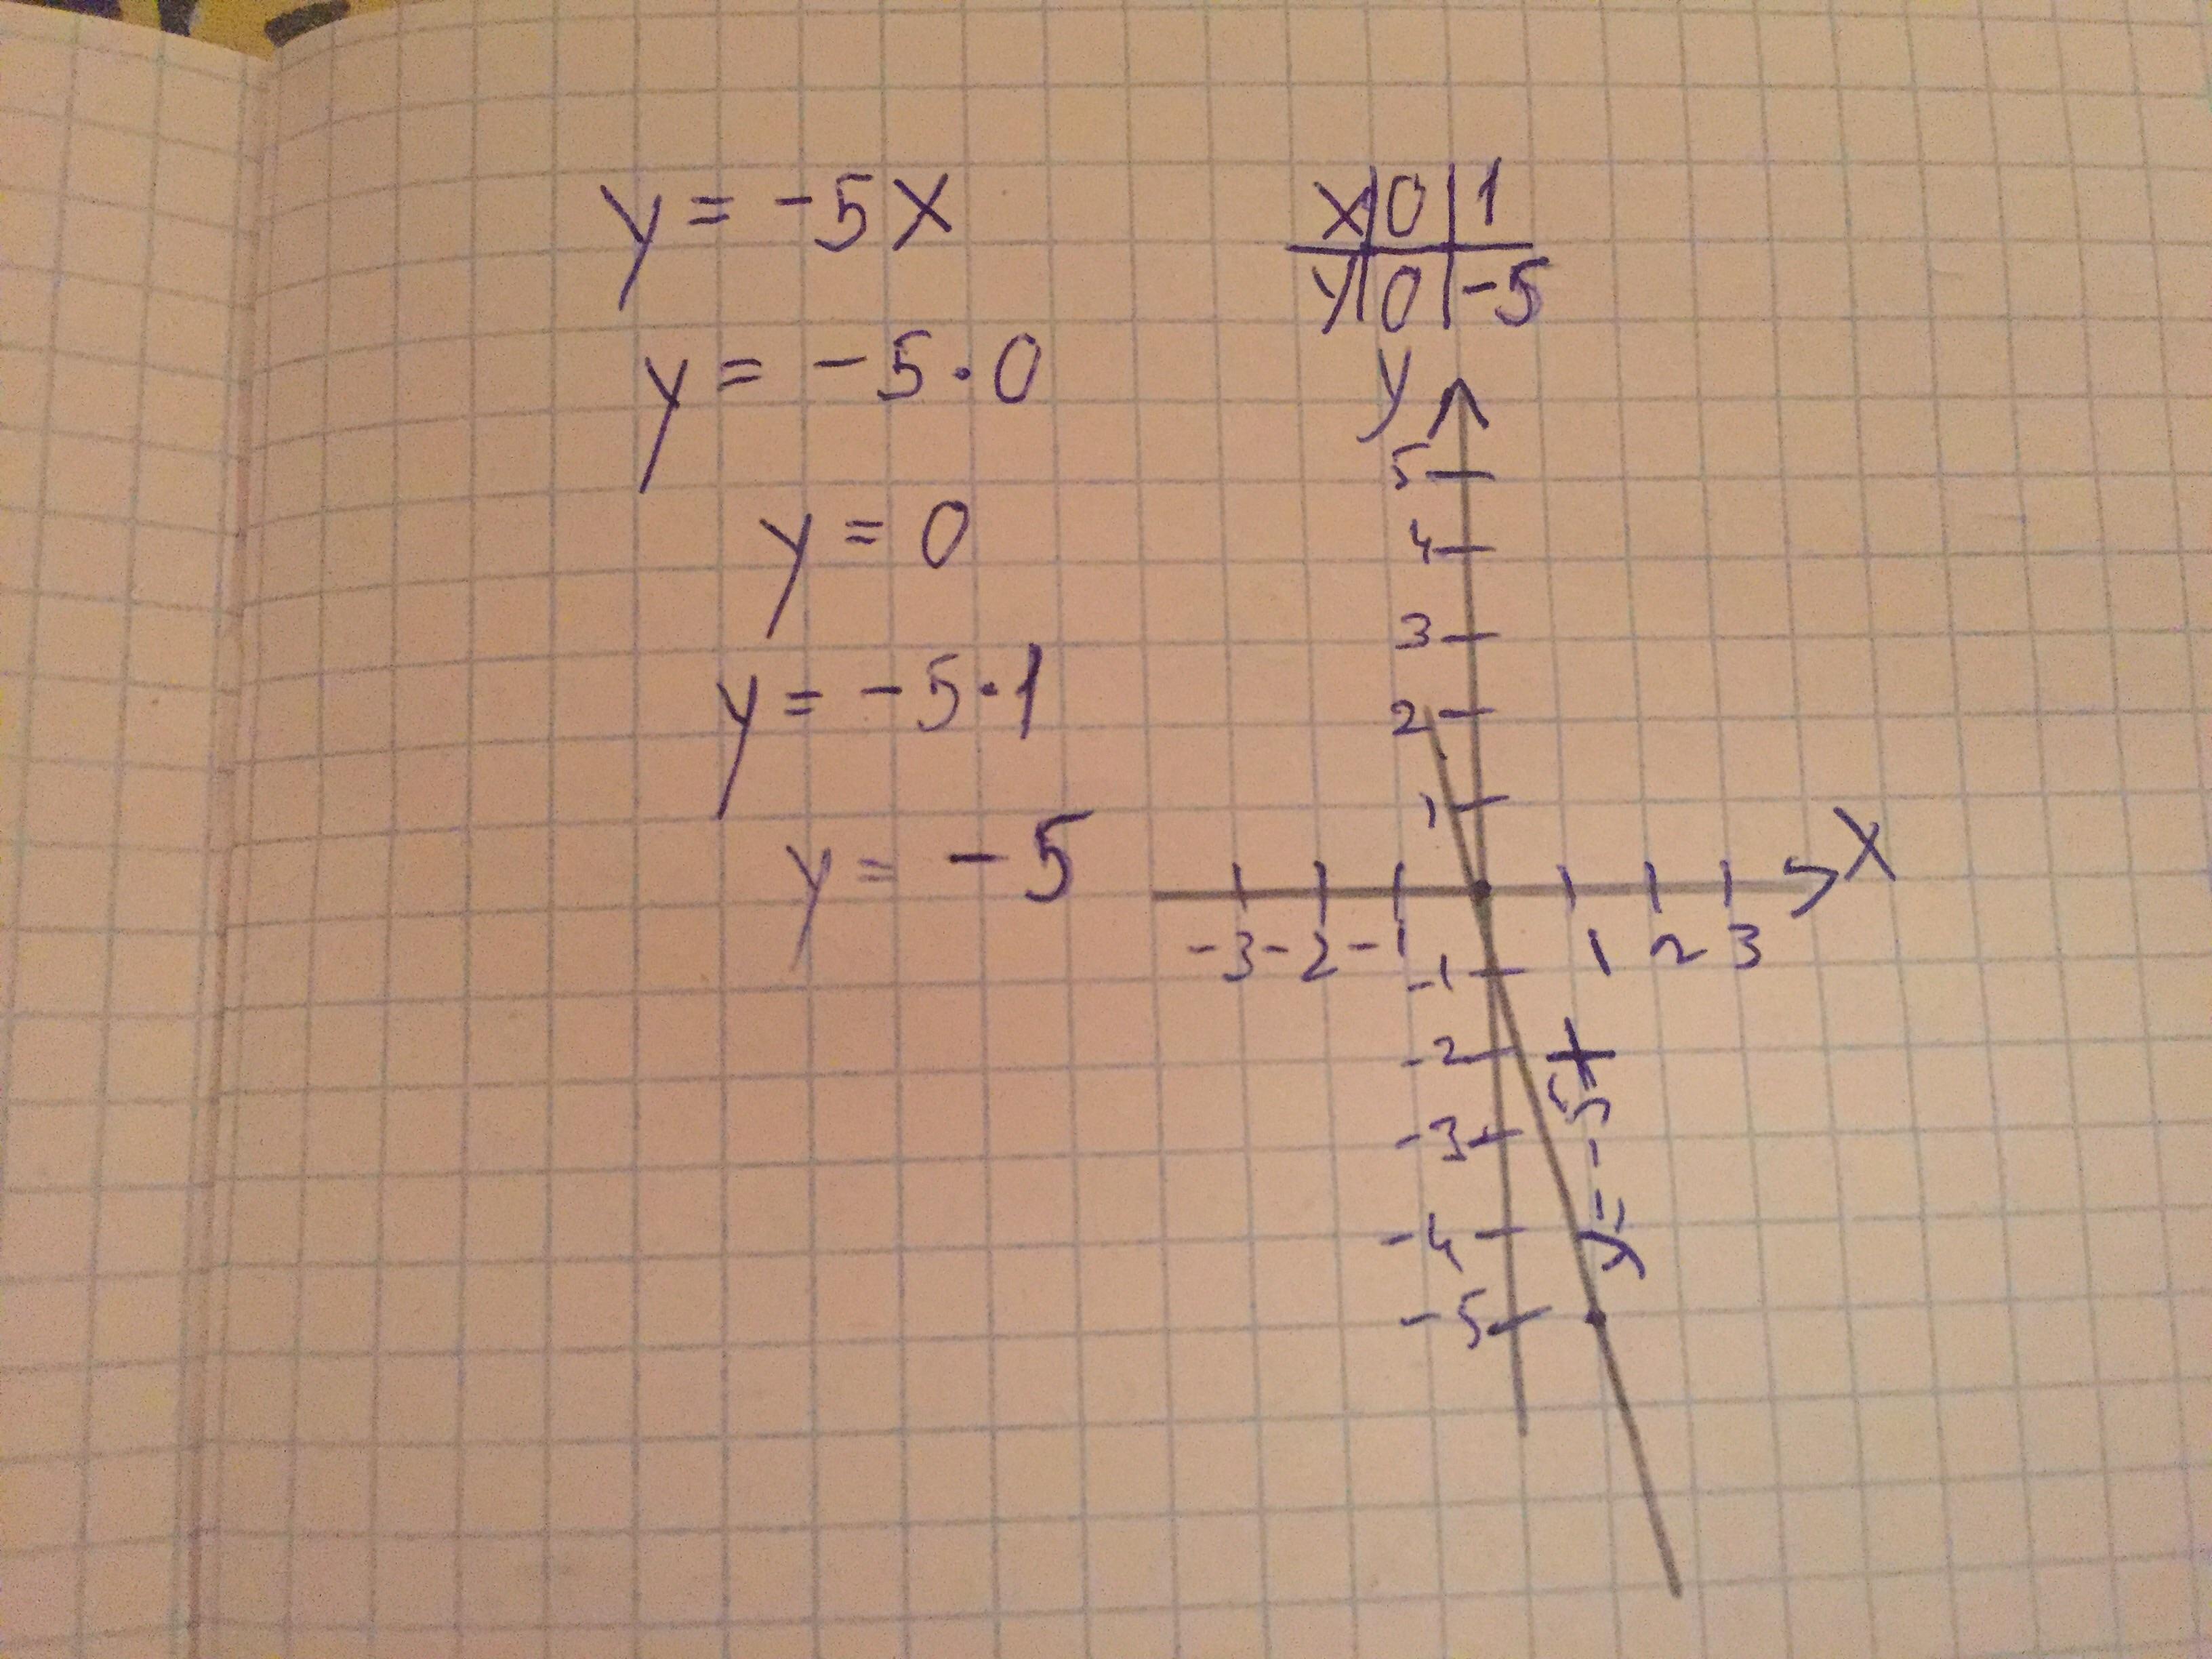 y = -5x
y = -5·0
y = 0
y = -5·1
y = -5
x | 0 | 1
y | 0 | -5
y
5
4
3
2
1
x
-3 -2 -1 1 2 3
-1
-2
-3
-4
-5
y = -5x